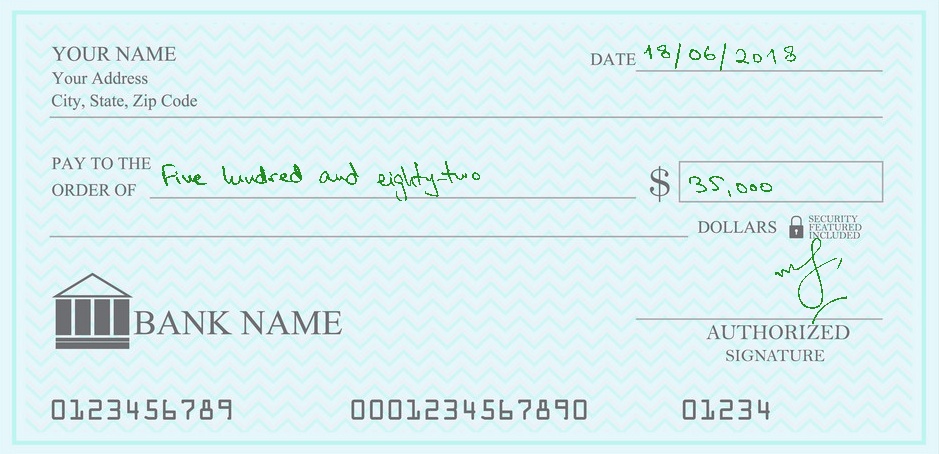 YOUR NAME
DATE 18/06/2018
Your Address
City, State, Zip Code
PAY TO THE
ORDER OF Five hundred and eighty-two $ 35,000
DOLLARS
SECURITY
FEATURED
INCLUDED
BANK NAME
AUTHORIZED
SIGNATURE
0123456789 0001234567890 01234